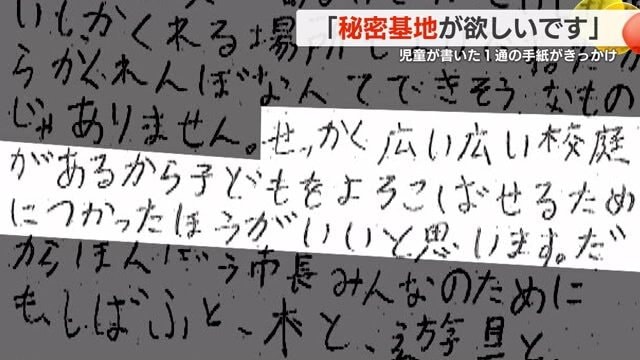 「秘密基地が欲しいです」
児童が書いた１通の手紙がきっかけ
いも、かくれる場所
らかくれんぼなんてできそうなもの
じゃありません。せっかく広い広い校庭
があるから子どもをよろこばせるため
につかったほうがいいと思います。だ
からほんぼう市長みんなのために
も、しばふと、木と、遊具と